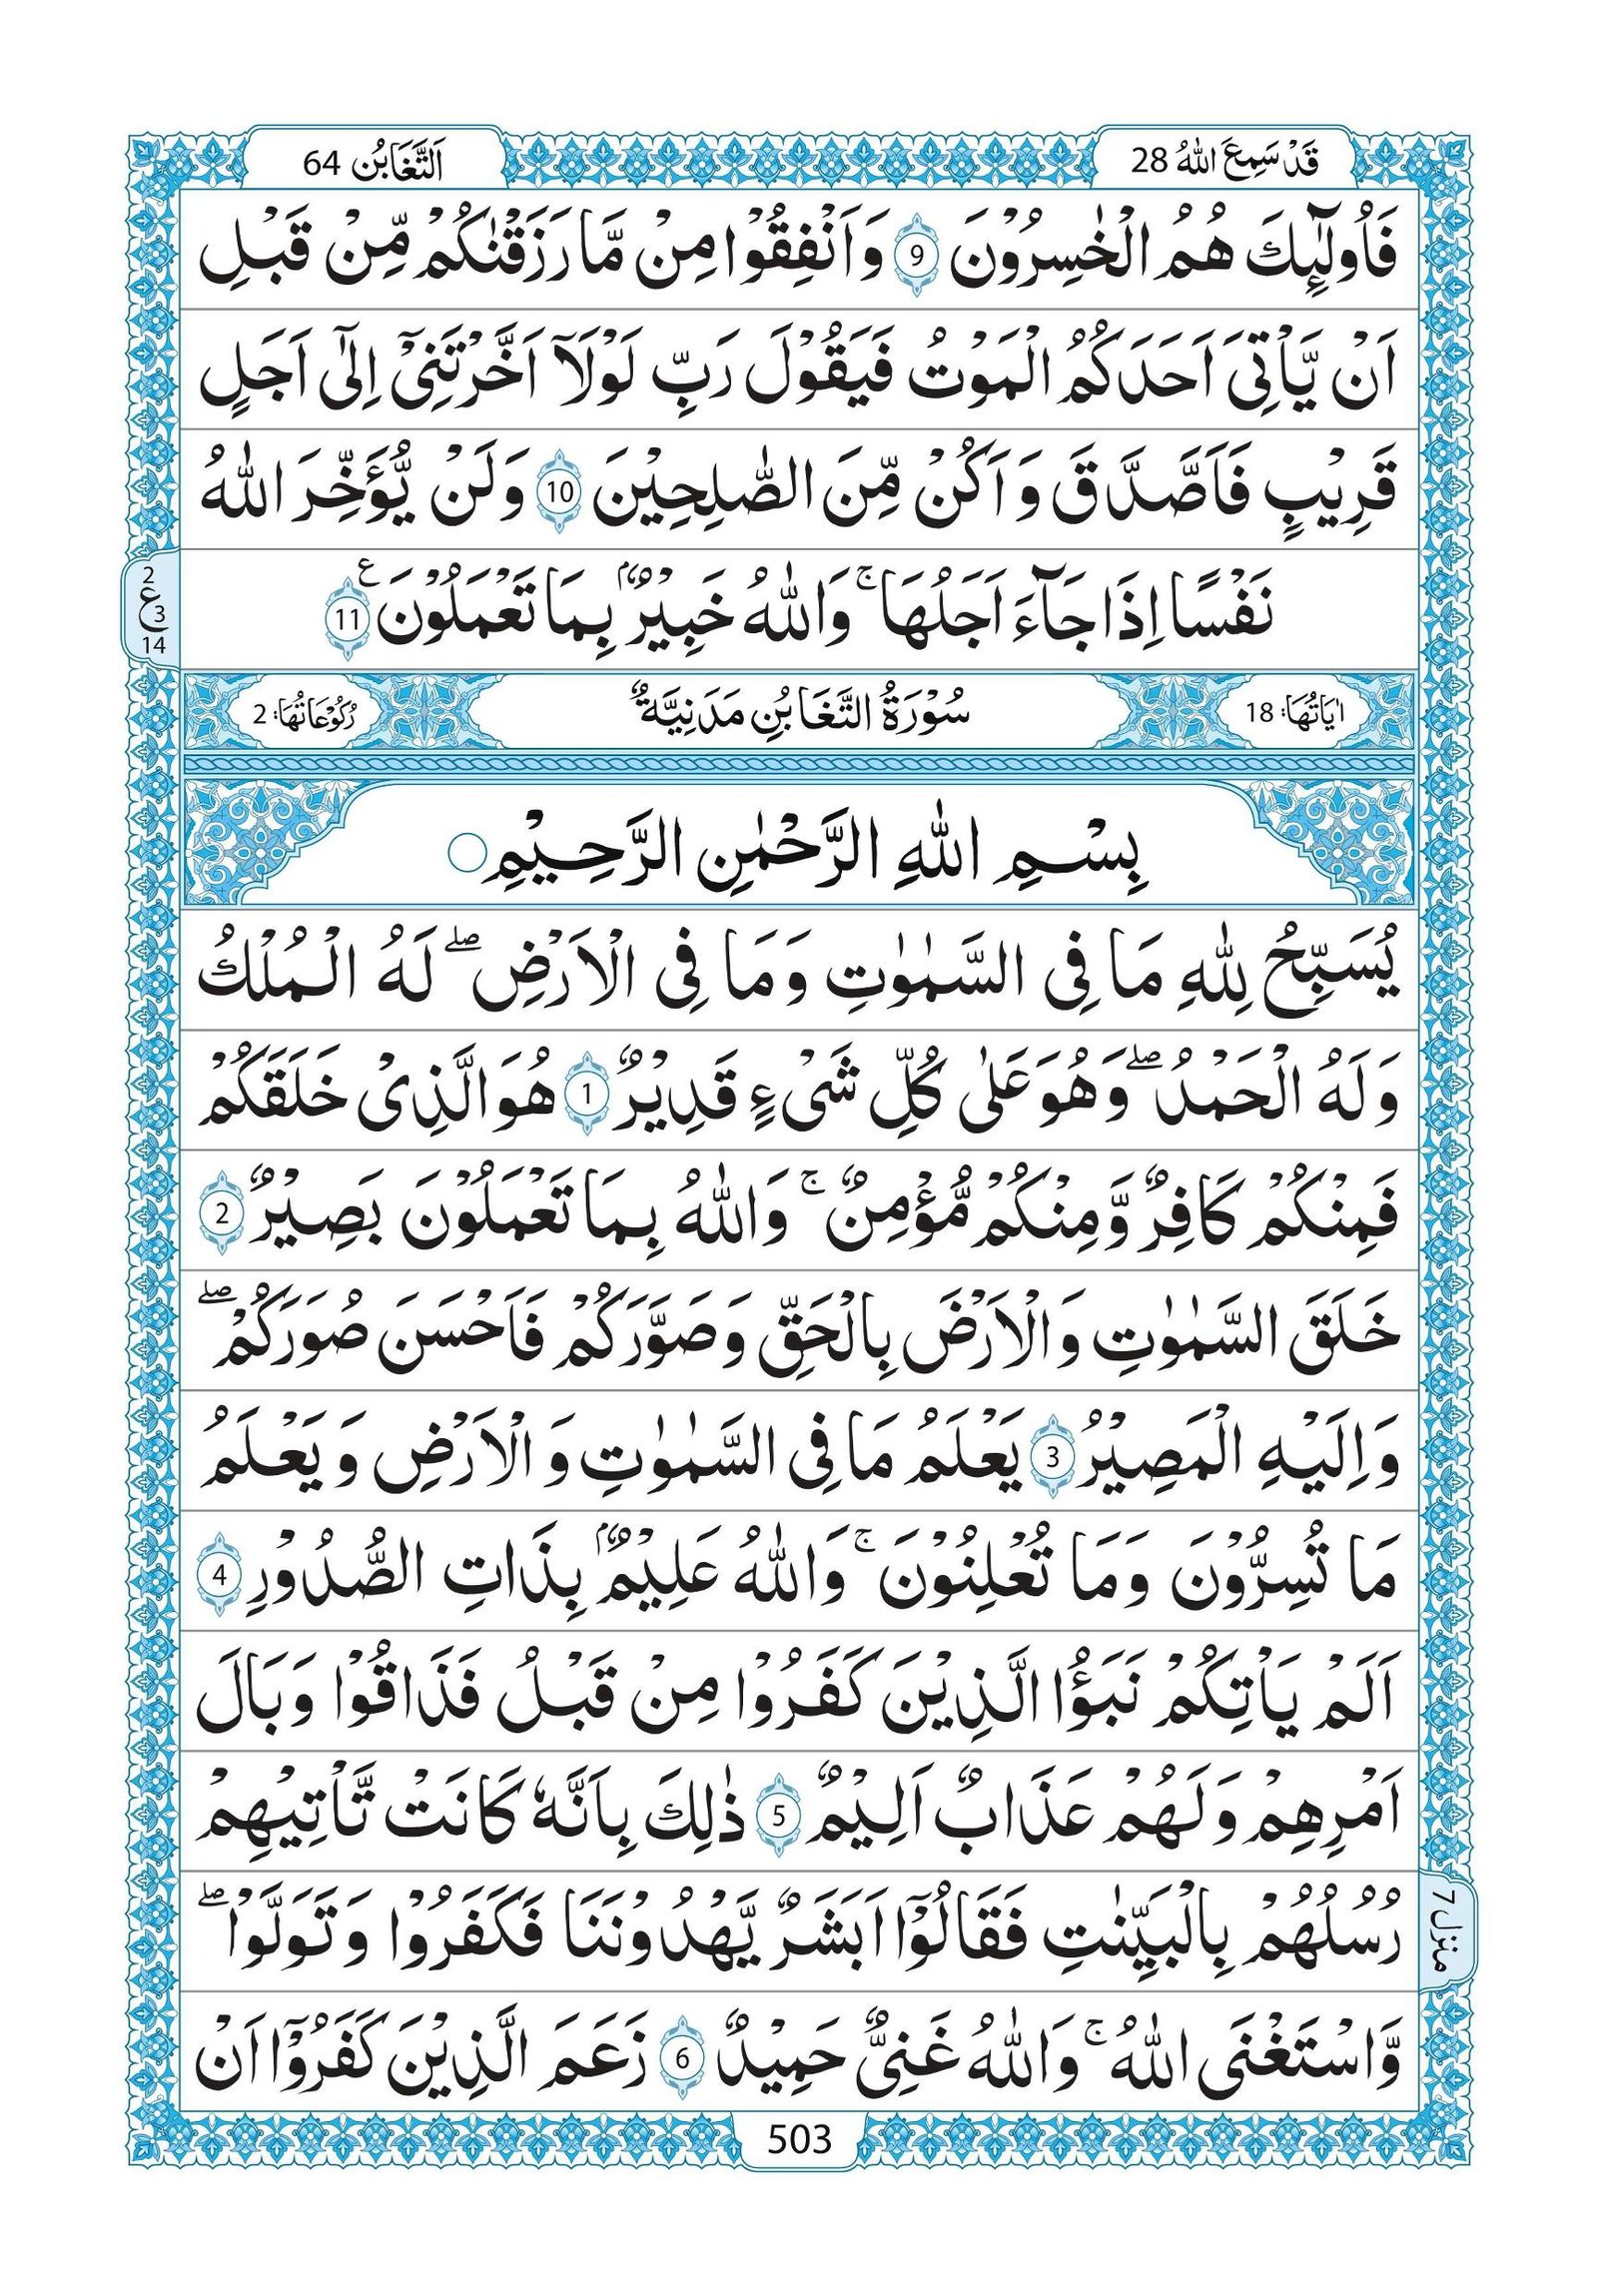 قَدْ سَمِعَ اللّٰهُ 28
اَلتَّغَابُن 64
فَاُولٰٓئِكَ هُمُ الْخٰسِرُوْنَ 9 وَاَنْفِقُوْا مِنْ مَّا رَزَقْنٰكُمْ مِّنْ قَبْلِ
اَنْ يَّاْتِىَ اَحَدَكُمُ الْمَوْتُ فَيَقُوْلَ رَبِّ لَوْلَاۤ اَخَّرْتَنِىْۤ اِلٰٓى اَجَلٍ
قَرِيْبٍ فَاَصَّدَّقَ وَاَكُنْ مِّنَ الصّٰلِحِيْنَ 10 وَلَنْ يُّؤَخِّرَ اللّٰهُ
نَفْسًا اِذَا جَآءَ اَجَلُهَا ۚ وَاللّٰهُ خَبِيْرٌۢ بِمَا تَعْمَلُوْنَ 11 ع
2
ع 3
14
اٰيَاتُهَا: 18 سُوْرَةُ التَّغَابُنِ مَدَنِيَّةٌ رُكُوْعَاتُهَا: 2
بِسْمِ اللّٰهِ الرَّحْمٰنِ الرَّحِيْمِ
يُسَبِّحُ لِلّٰهِ مَا فِى السَّمٰوٰتِ وَمَا فِى الْاَرْضِ ۖ لَهُ الْمُلْكُ
وَلَهُ الْحَمْدُ ۖ وَهُوَ عَلٰى كُلِّ شَىْءٍ قَدِيْرٌ 1 هُوَ الَّذِىْ خَلَقَكُمْ
فَمِنْكُمْ كَافِرٌ وَّمِنْكُمْ مُّؤْمِنٌ ۚ وَاللّٰهُ بِمَا تَعْمَلُوْنَ بَصِيْرٌ 2
خَلَقَ السَّمٰوٰتِ وَالْاَرْضَ بِالْحَقِّ وَصَوَّرَكُمْ فَاَحْسَنَ صُوَرَكُمْ ۖ
وَاِلَيْهِ الْمَصِيْرُ 3 يَعْلَمُ مَا فِى السَّمٰوٰتِ وَالْاَرْضِ وَيَعْلَمُ
مَا تُسِرُّوْنَ وَمَا تُعْلِنُوْنَ ۚ وَاللّٰهُ عَلِيْمٌۢ بِذَاتِ الصُّدُوْرِ 4
اَلَمْ يَاْتِكُمْ نَبَؤُا الَّذِيْنَ كَفَرُوْا مِنْ قَبْلُ فَذَاقُوْا وَبَالَ
اَمْرِهِمْ وَلَهُمْ عَذَابٌ اَلِيْمٌ 5 ذٰلِكَ بِاَنَّهٗ كَانَتْ تَّاْتِيْهِمْ
رُسُلُهُمْ بِالْبَيِّنٰتِ فَقَالُوْۤا اَبَشَرٌ يَّهْدُوْنَنَا فَكَفَرُوْا وَتَوَلَّوْا ۖ
منزل 7
وَّاسْتَغْنَى اللّٰهُ ۚ وَاللّٰهُ غَنِىٌّ حَمِيْدٌ 6 زَعَمَ الَّذِيْنَ كَفَرُوْۤا اَنْ
503